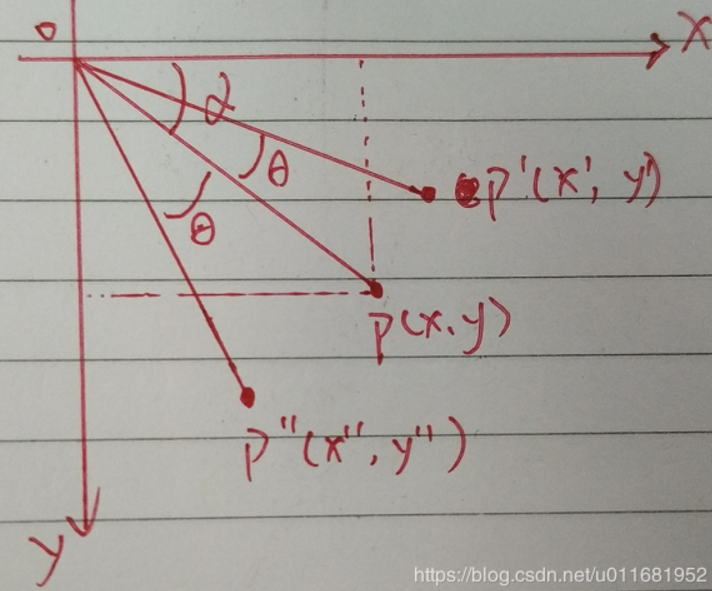 o
X
α
θ
p'(x', y')
θ
p(x, y)
p"(x", y")
y
https://blog.csdn.net/u011681952